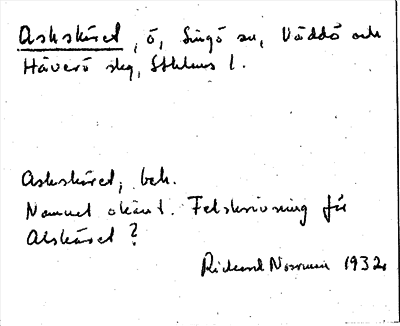 Askskäret, ö, Singö sn, Väddö och
Häverö skg, Sthlms l.
Askskäret, bek.
Namnet okänt. Felskrivning för
Alskäret?
Rickard Norman 1932.